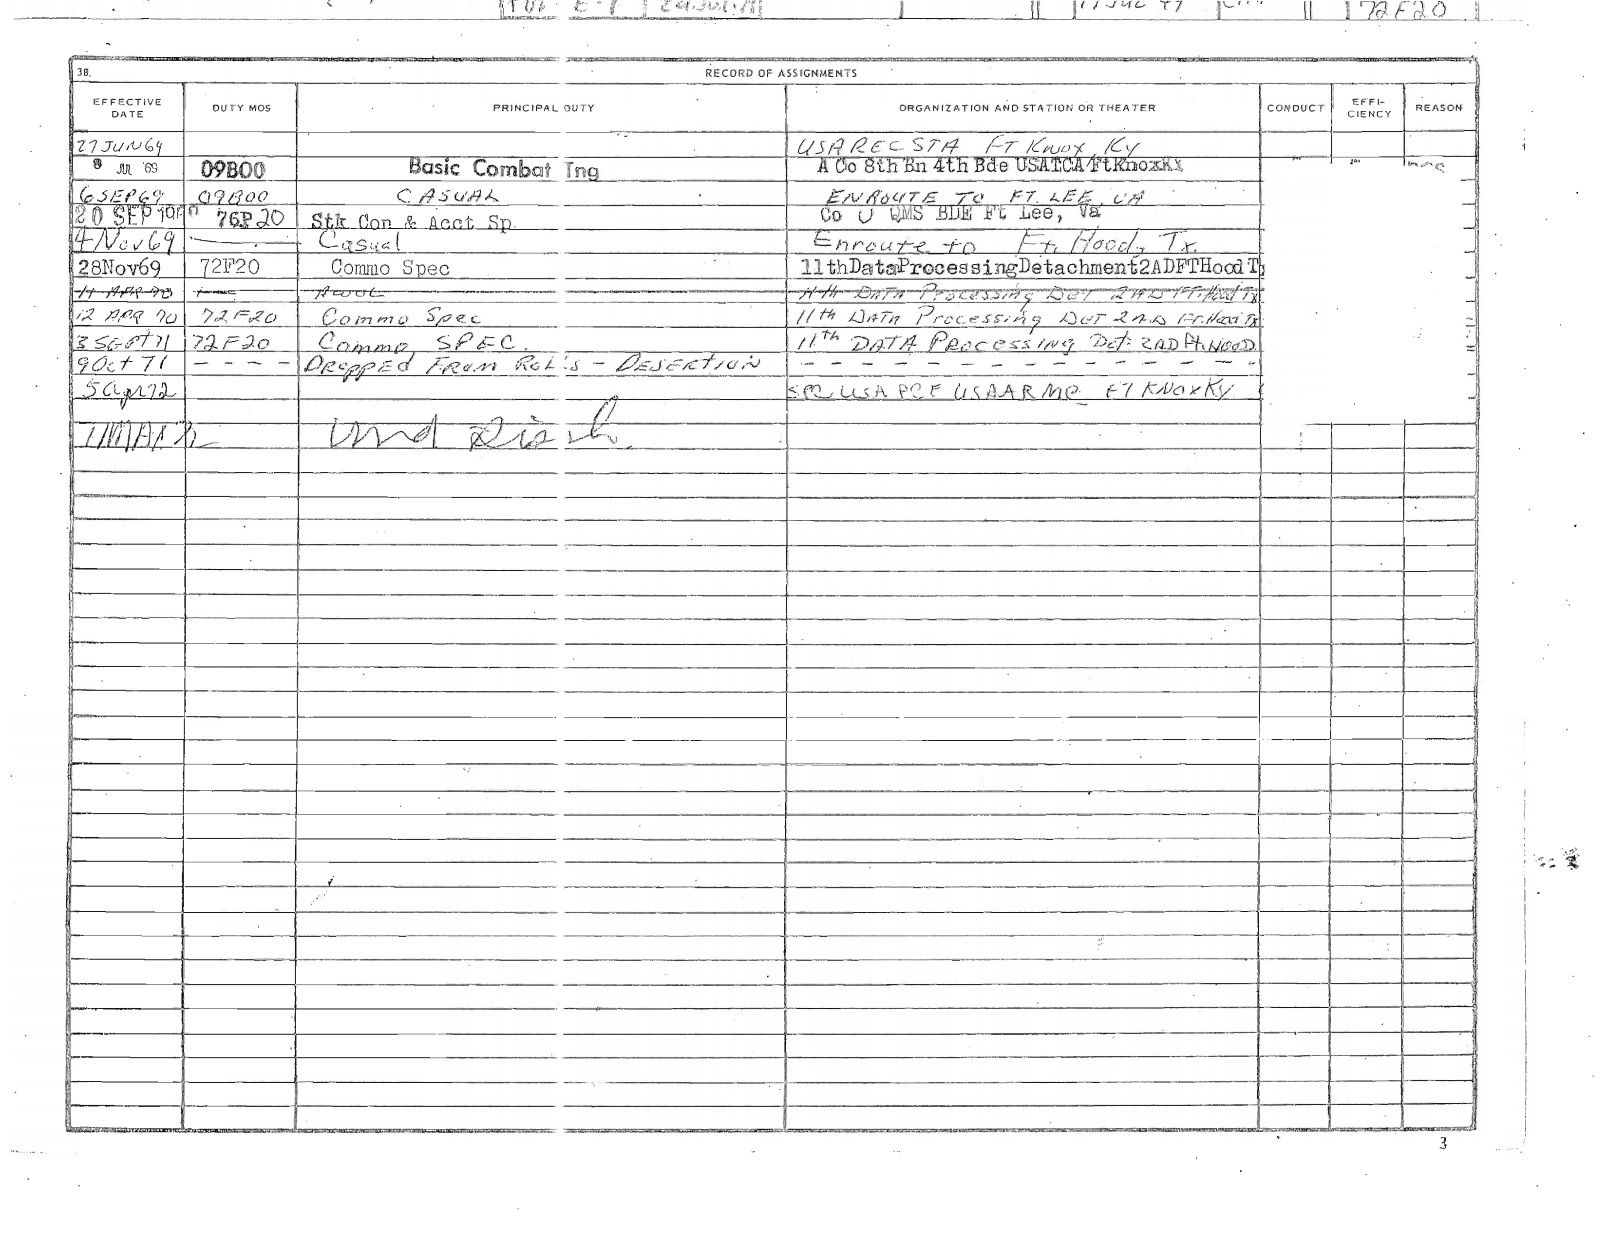 E-1
72F20
38.
RECORD OF ASSIGNMENTS
EFFECTIVE DATE DUTY MOS PRINCIPAL DUTY ORGANIZATION AND STATION OR THEATER CONDUCT EFFI-CIENCY REASON
27 JUN 69 USARECSTA FT KNOX, KY
8 JUL '69 09B00 Basic Combat Tng A Co 8th Bn 4th Bde USATCA FtKnoxKy
6 SEP 69 09B00 CASUAL ENROUTE TO FT. LEE, VA
20 SEP 76P20 Stk Con & Acct Sp. Co U QMS BDE Ft Lee, Va
4 Nov 69 Casual Enroute to Ft, Hood, Tx
28Nov69 72F20 Commo Spec 11thDataProcessingDetachment2ADFTHood T
11 APR 70 AWOL 11th DATA Processing Det 2AD FT.Hood Tx
12 APR 70 72F20 Commo Spec 11th DATA Processing Det 2AD Ft.Hood Tx
3 SEPT 71 72F20 Commo SPEC. 11th DATA Processing Det: 2AD Ft. HOOD
9 Oct 71 - - - - Dropped From Rolls - Desertion - - - - - - - - - - - - - -
5 Apr 72 SPC USA PCF USAARMC FT KNOX KY
Und Disch.
3